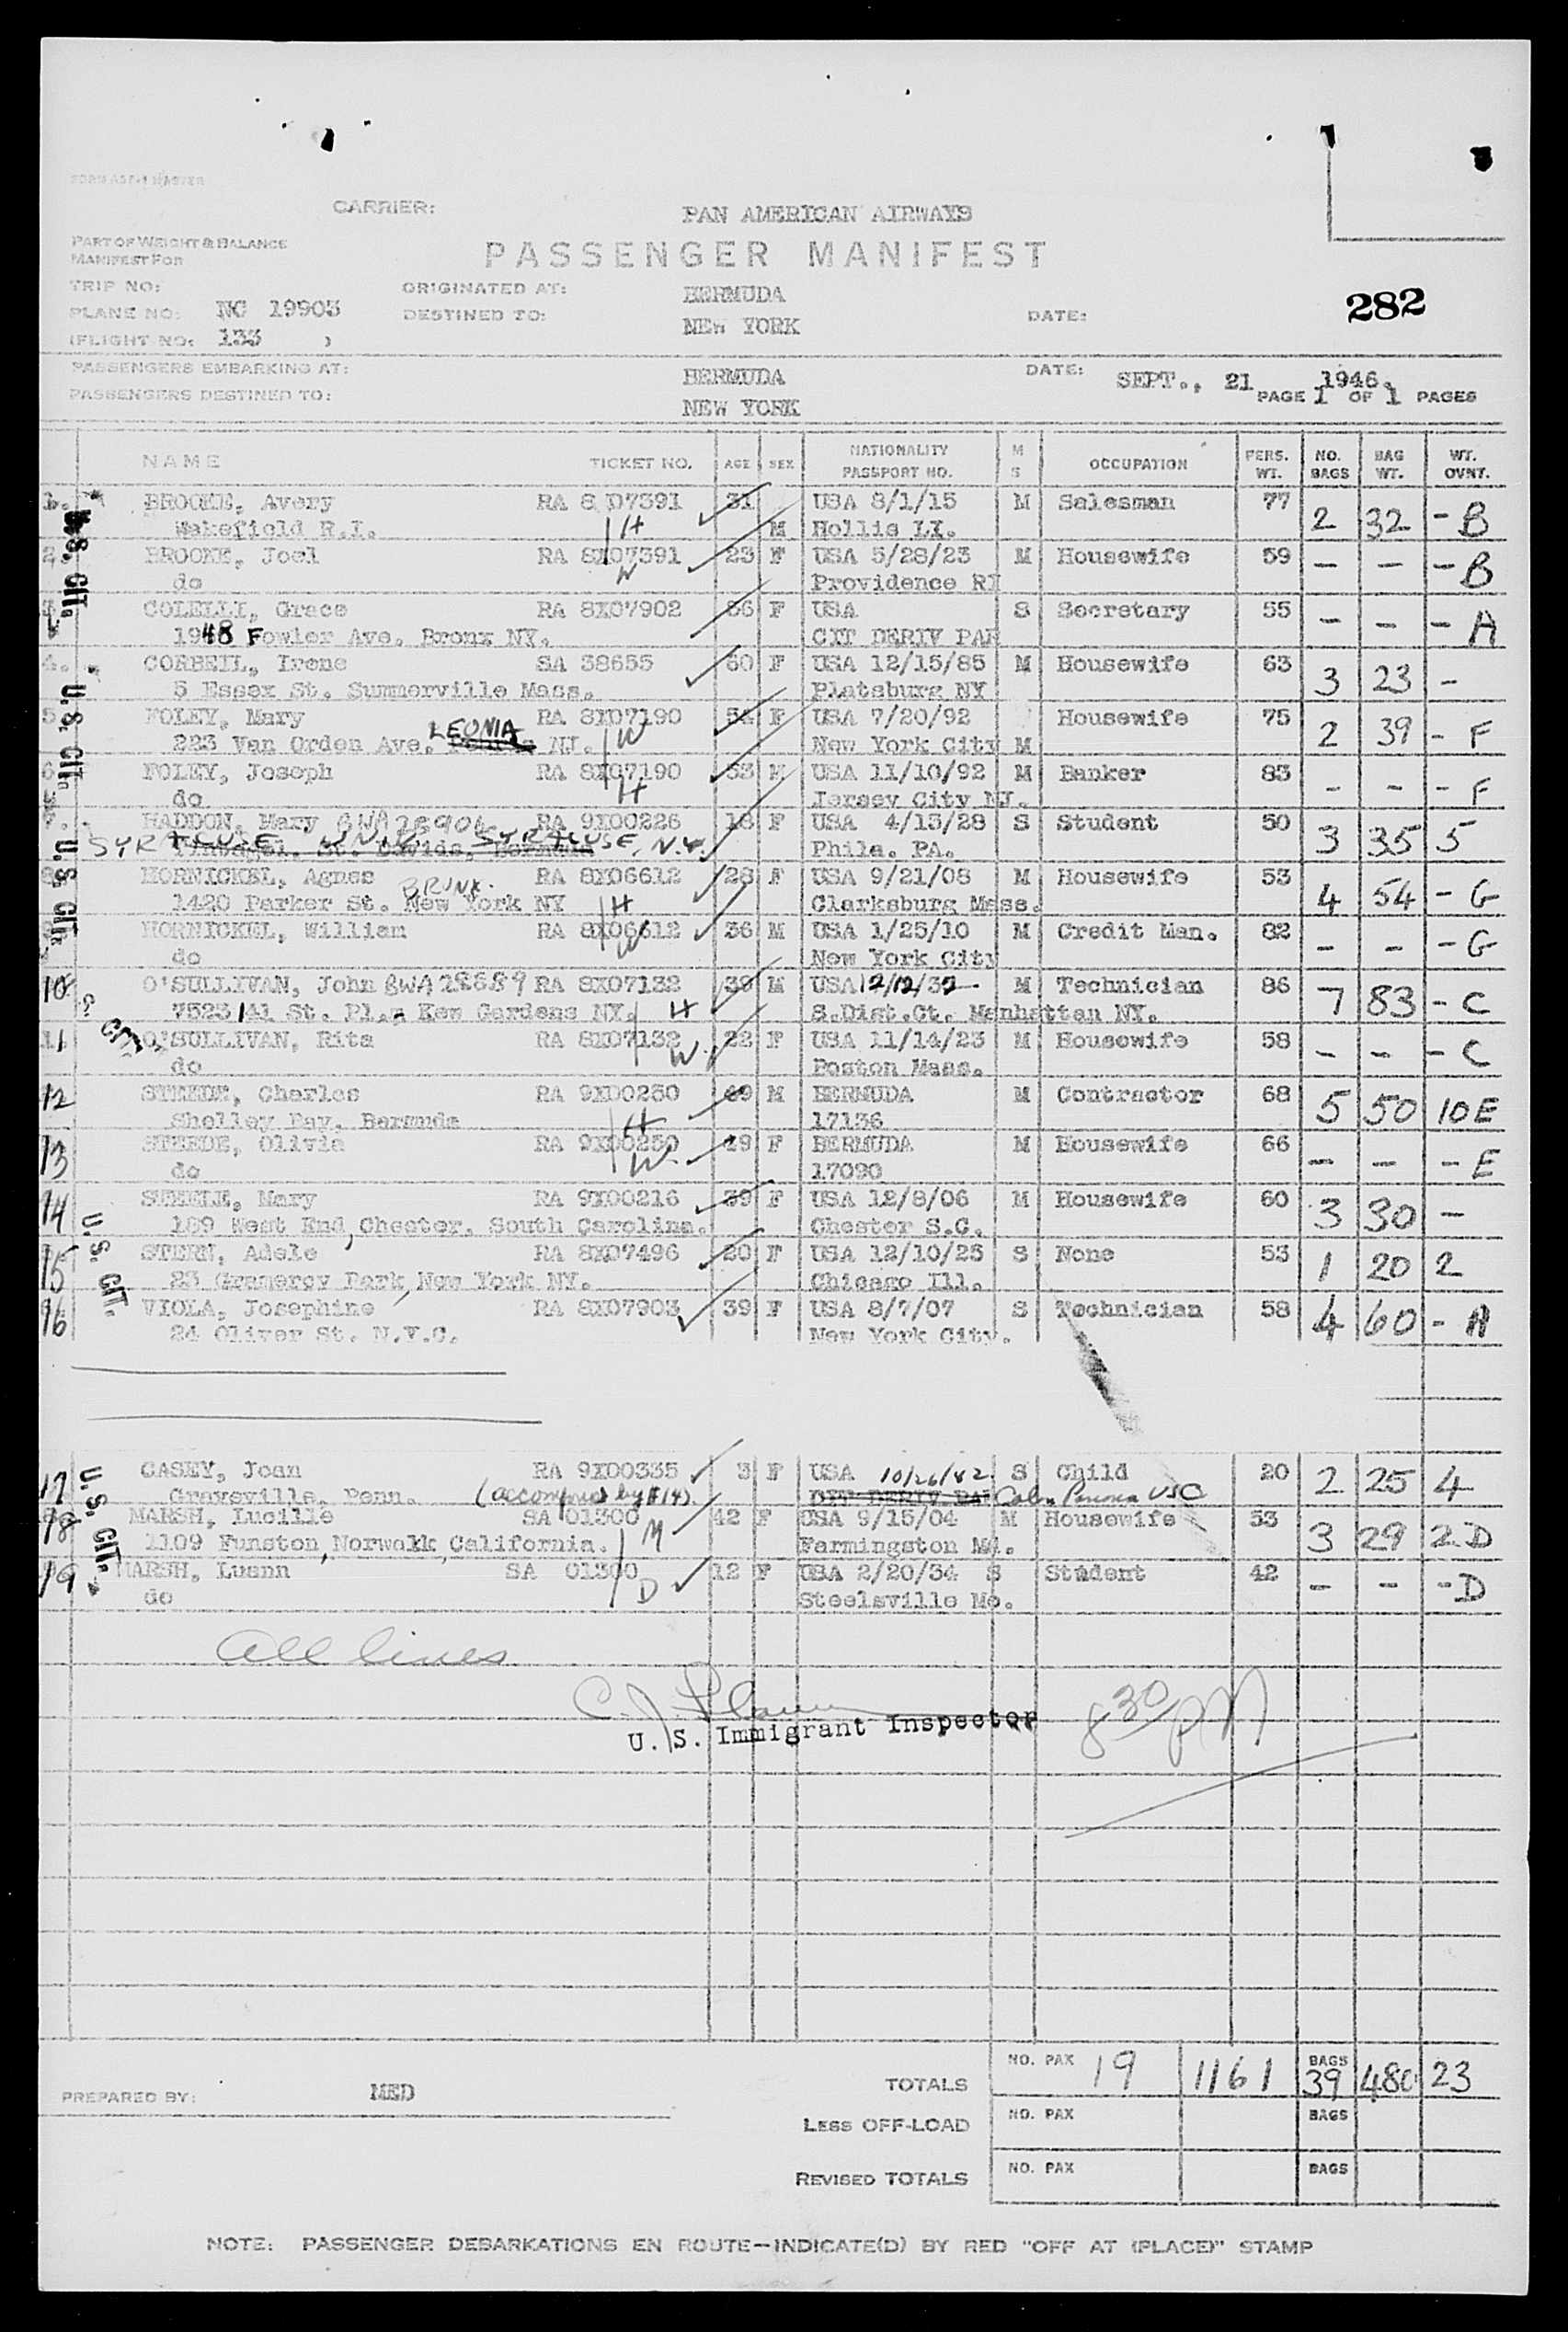 FORM AST-1 MASTER
CARRIER: PAN AMERICAN AIRWAYS
PART OF WEIGHT & BALANCE
MANIFEST FOR
PASSENGER MANIFEST
TRIP NO:
ORIGINATED AT: BERMUDA
PLANE NO: NC 19903
DESTINED TO: NEW YORK
DATE:
282
(FLIGHT NO: 133 )
PASSENGERS EMBARKING AT: BERMUDA
DATE: SEPT., 21 1946.
PASSENGERS DESTINED TO: NEW YORK
PAGE 1 OF 1 PAGES
NAME TICKET NO. AGE SEX NATIONALITY PASSPORT NO. M S OCCUPATION PERS. WT. NO. BAGS BAG WT. WT. OVNT.
1. BROOKE, Avery RA 8 07391 31 USA 8/1/15 M Salesman 77 2 32 - B
Wakefield R.I. H M Hollis LI.
2. BROOKE, Joel RA 8X07391 23 F USA 5/28/23 M Housewife 59 - - - B
do W Providence RI
U.S. CIT.
3. COLELLI, Grace RA 8X07902 36 F USA S Secretary 55 - - - A
1948 Fowler Ave. Bronx NY. CIT DERIV PAR
4. CORBEIL, Irene SA 38655 60 F USA 12/15/85 M Housewife 63 3 23 -
5 Essex St. Summerville Mass. Platsburg NY
U.S. CIT.
5. FOLEY, Mary RA 8X07190 54 F USA 7/20/92 Housewife 75 2 39 - F
223 Van Orden Ave. LEONIA NJ. W New York City M
6. FOLEY, Joseph RA 8X07190 53 M USA 11/10/92 M Banker 83 - - - F
do H Jersey City NJ.
7. HADDON, Mary RA 9X00226 18 F USA 4/13/28 S Student 50 3 35 5
SYRACUSE UNIV. SYRACUSE, N.Y. Phila. PA.
U.S. CIT.
8. HORNICKEL, Agnes RA 8X06612 28 F USA 9/21/08 M Housewife 53 4 54 - G
1420 Parker St. BRONX. New York NY H Clarksburg Mass.
HORNICKEL, William RA 8X06612 36 M USA 1/25/10 M Credit Man. 82 - - - G
do W New York City
10 O'SULLIVAN, John RA 8X07132 39 M USA 12/12/32 M Technician 86 7 83 - C
7523 141 St. Pl., Kew Gardens NY. H S.Dist.Ct. Manhattan NY.
CIT.
11 O'SULLIVAN, Rita RA 8X07132 22 F USA 11/14/23 M Housewife 58 - - - C
do W. Boston Mass.
12 STEEDE, Charles RA 9X00250 49 M BERMUDA M Contractor 68 5 50 10 E
Shelley Bay, Bermuda H 17136
13 STEEDE, Olivia RA 9X00250 49 F BERMUDA M Housewife 66 - - - E
do W. 17090
14 Mary RA 9X00216 39 F USA 12/8/06 M Housewife 60 3 30 -
189 West End, Chester, South Carolina. Chester S.C.
U.S. CIT.
15 STERN, Adele RA 8X07496 20 F USA 12/10/25 S None 53 1 20 2
23 Gramercy Park, New York NY. Chicago Ill.
16 VIOLA, Josephine RA 8X07903 39 F USA 8/7/07 S Technician 58 4 60 - A
24 Oliver St. N.Y.C. New York City.
17 CASEY, Joan RA 9X00335 3 F USA 10/26/42 S Child 20 2 25 4
Graysville, Penn. (accompanied by #14). CIT DERIV PAR Colon Panama USC
U.S. CIT.
18 MARSH, Lucille SA 01300 42 F USA 9/15/04 M Housewife 53 3 29 2 D
1109 Funston, Norwalk, California. M Farmingston Mo.
19 MARSH, Luann SA 01300 12 F USA 2/20/34 S Student 42 - - - D
do D Steelsville Mo.
All lines
U. S. Immigrant Inspector
8 30 PM
TOTALS NO. PAX 19 1161 BAGS 39 480 23
PREPARED BY: MED
LESS OFF-LOAD NO. PAX BAGS
REVISED TOTALS NO. PAX BAGS
NOTE: PASSENGER DEBARKATIONS EN ROUTE—INDICATE(D) BY RED "OFF AT (PLACE)" STAMP